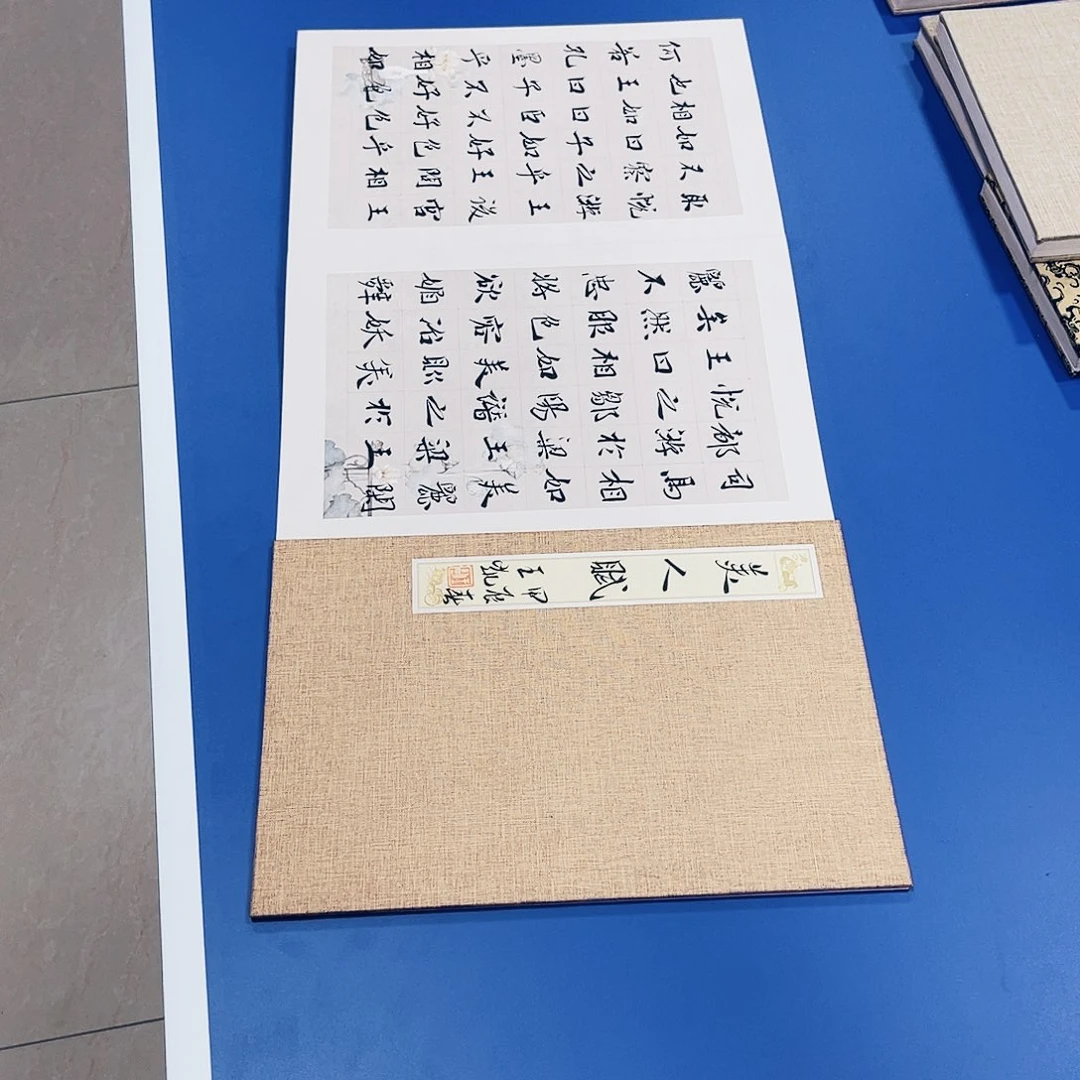 美人賦
甲辰春
王凯
司馬相如美麗閑
都游於梁王梁王
悦之鄒陽譖之於
王曰相如美則美
矣然服色容冶妖
麗不忠將欲媚辭
取悦游王後宫王
不察之乎王問相
如曰子如好色乎
相如曰臣不好色
也王曰子不好色
何若孔墨乎相如